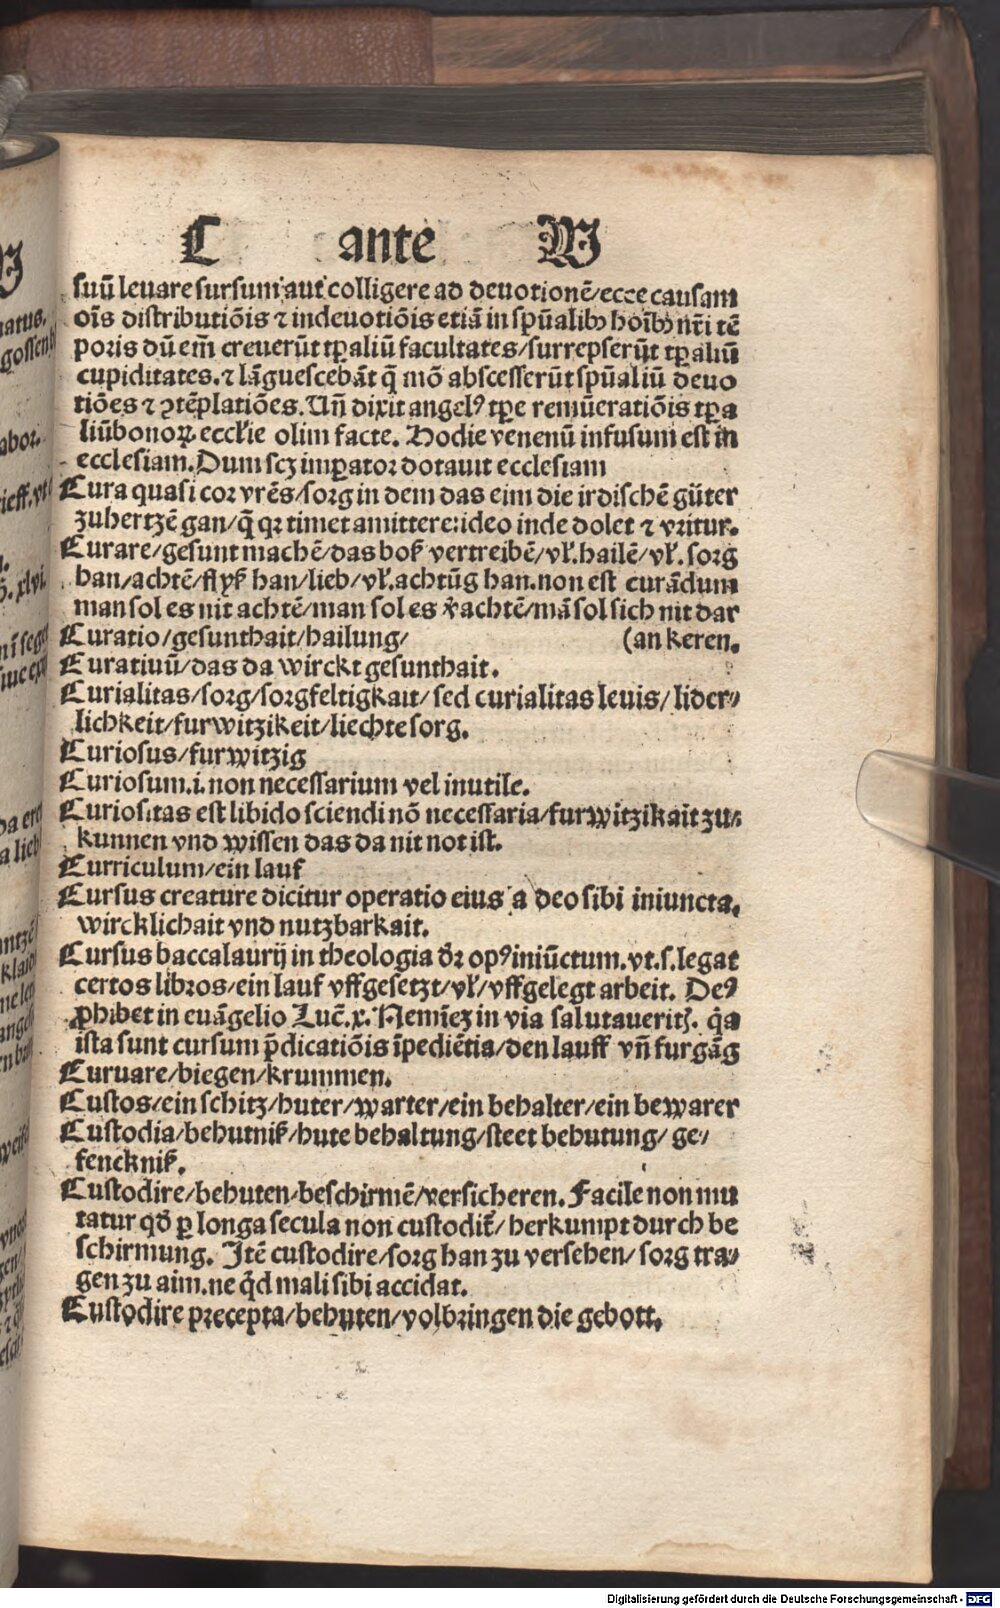 C ante V
suū levare sursum aut colligere ad deuotionē/ecce causam
oīs distributiōis ⁊ indeuotiōis etiā in spūalibꝫ hoībꝫ nr̄i tē
poris dū em̄ creuerūt tꝑaliū facultates/surrepserūt tꝑaliū
cupiditates.⁊ lāguescebāt q̄ mō abscesserūt spūaliū deuo
tiōes ⁊ ꝯtēplatiōes. Un̄ dixit angelꝰ tꝑe remūeratiōis tꝑa
liūbonoꝝ eccłie olim facte. Hodie venenū infusum est in
ecclesiam. Dum scꝫ imꝑator dotauit ecclesiam
Cura quasi cor vrēs/sorg in dem das eim die irdischē güter
zuhertzē gan/q̄ qꝛ timet amittere:ideo inde dolet ⁊ vritur.
Curare/gesunt machē/das boß vertreibē/vł.hailē/vł.sorg
han/achtē/flyß han/lieb/vł.achtūg han.non est curādum
man sol es nit achtē/man sol es v̄achtē/mā sol sich nit dar
Curatio/gesunthait/hailung/ (an keren.
Curatiuū/das da wirckt gesunthait.
Curialitas/sorg/sorgfeltigkait/sed curialitas leuis/lider⸗
lichkeit/furwitzikeit/liechte sorg.
Curiosus/furwitzig
Curiosum.i.non necessarium vel inutile.
Curiositas est libido sciendi nō necessaria/furwitzikait zu⸗
kunnen vnd wissen das da nit not ist.
Curriculum/ein lauf
Cursus creature dicitur operatio eius a deo sibi iniuncta.
wircklichait vnd nutzbarkait.
Cursus baccalaurij in theologia dꝛ̄ opꝰ iniūctum.vt.s.legat
certos libros/ein lauf vffgesetzt/vł/vffgelegt arbeit. Deꝰ
ꝓhibet in euāgelio Luc̄.x. Nemīeꝫ in via salutaueritꝭ. q̇a
ista sunt cursum p̄dicatiōis īpediētia/den lauff vn̄ furgāg
Curuare/biegen/krummen.
Custos/ein schitz/huter/warter/ein behalter/ein bewarer
Custodia/behutniß/hute behaltung/steet behutung/ ge⸗
fenckniß.
Custodire/behuten/beschirmē/versicheren. Facile non mu
tatur qd̄ ꝑ longa secula non custodit̄/herkumpt durch be
schirmung. Itē custodire/sorg han zu versehen/sorg tra⸗
gen zu aim.ne q̇d mali sibi accidat.
Custodire precepta/behuten/volbringen die gebott.
Digitalisierung gefördert durch die Deutsche Forschungsgemeinschaft - DFG